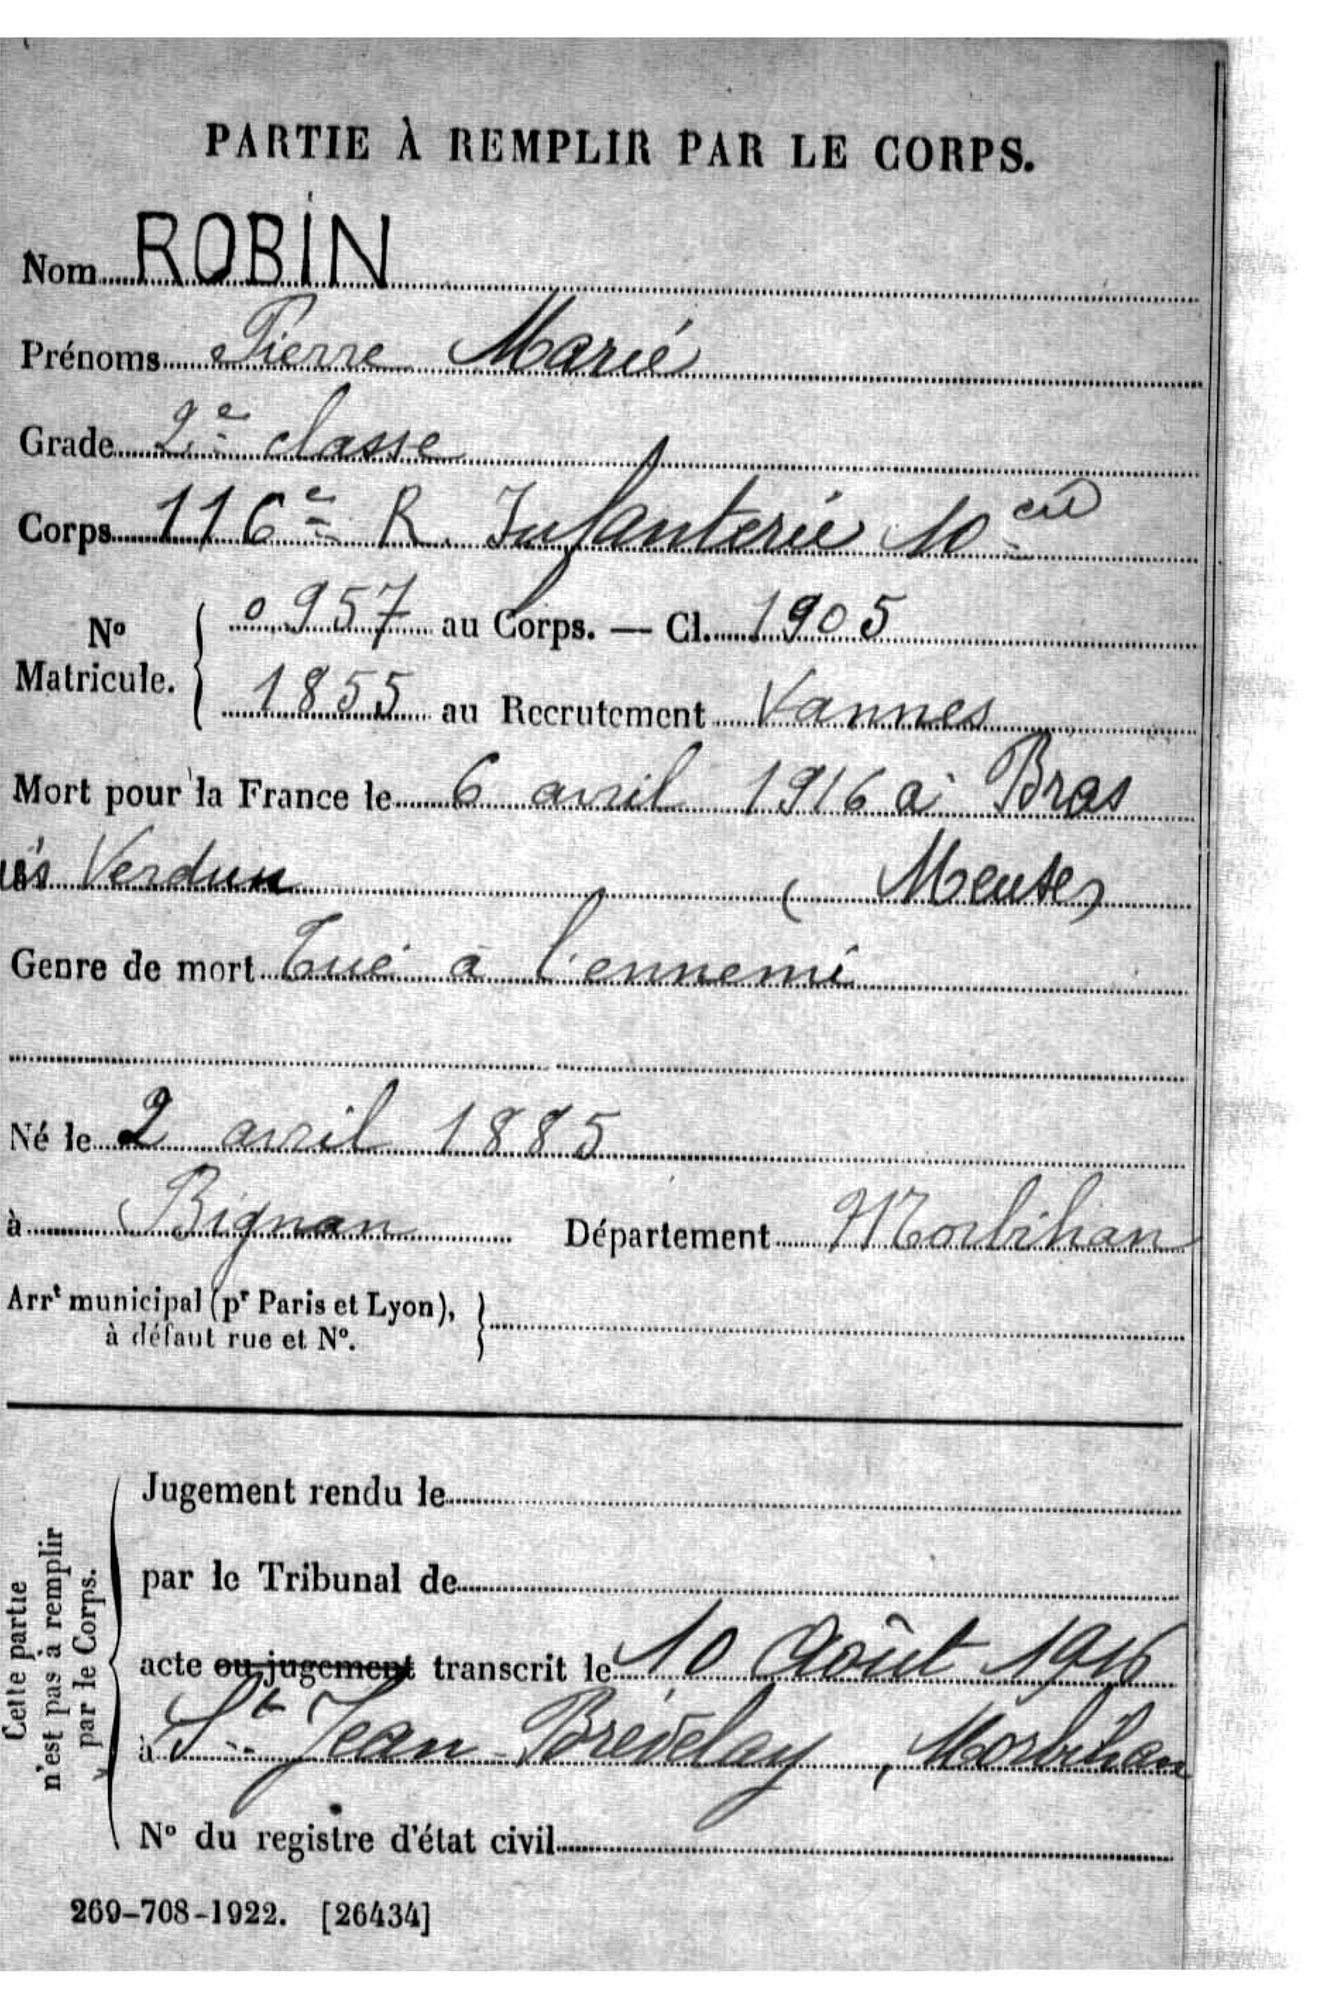 PARTIE À REMPLIR PAR LE CORPS.
Nom ROBIN
Prénoms Pierre Marie
Grade 2e classe
Corps 116e R. Infanterie 10e cie
No Matricule. { 0957 au Corps. — Cl. 1905
1855 au Recrutement Vannes
Mort pour la France le 6 avril 1916 à Bras
Verdun (Meuse)
Genre de mort Tué à l'ennemi
Né le 2 avril 1885
à Bignan Département Morbihan
Arrt municipal (pr Paris et Lyon), }
à défaut rue et No.
Cette partie
n'est pas à remplir
par le Corps.
Jugement rendu le
par le Tribunal de
acte ou jugement transcrit le 10 Août 1916
à St Jean-Brévelay, Morbihan
No du registre d'état civil
269-708-1922. [26434]